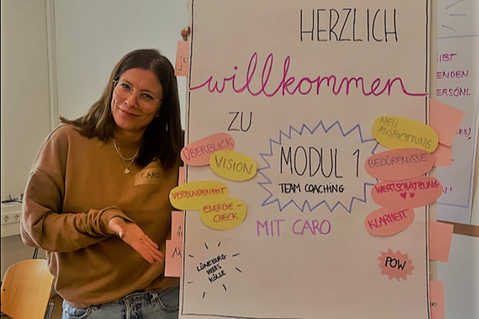 HERZLICH
willkommen
ZU
ÜBERBLICK
VISION
VERBUNDENHEIT
ENERGIE-
CHECK
MODUL 1
TEAM COACHING
MIT CARO
NEU
AUSRICHTUNG
BEDÜRFNISSE
WERTSCHÄTZUNG
KLARHEIT
LÜNEBURG
MEETS
KÖLLE
POW
CARO
IBT
ENDEN
ERSÖNL